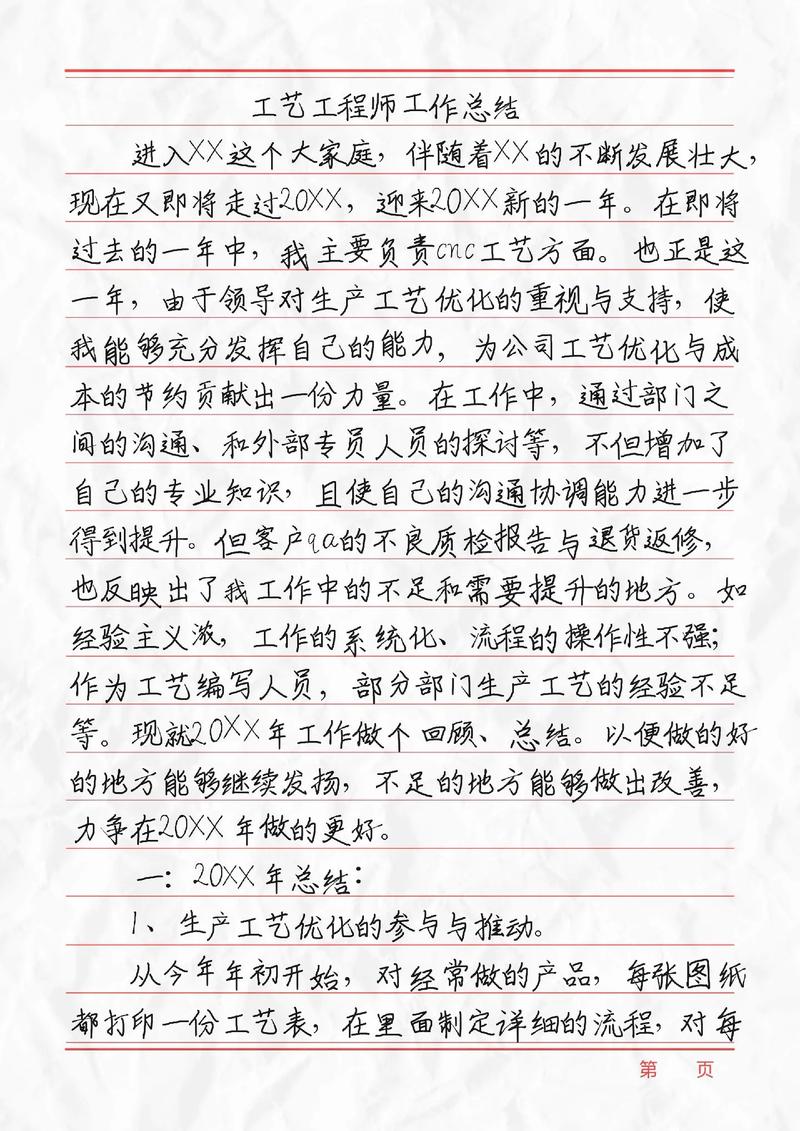 工艺工程师工作总结
进入XX这个大家庭，伴随着XX的不断发展壮大，
现在又即将走过20XX，迎来20XX新的一年。在即将
过去的一年中，我主要负责cnc工艺方面。也正是这
一年，由于领导对生产工艺优化的重视与支持，使
我能够充分发挥自己的能力，为公司工艺优化与成
本的节约贡献出一份力量。在工作中，通过部门之
间的沟通、和外部专员人员的探讨等，不但增加了
自己的专业知识，且使自己的沟通协调能力进一步
得到提升。但客户qa的不良质检报告与退货返修，
也反映出了我工作中的不足和需要提升的地方。如
经验主义浓，工作的系统化、流程的操作性不强；
作为工艺编写人员，部分部门生产工艺的经验不足
等。现就20XX年工作做个回顾、总结。以便做的好
的地方能够继续发扬，不足的地方能够做出改善，
力争在20XX年做的更好。
一：20XX年总结：
1、生产工艺优化的参与与推动。
从今年年初开始，对经常做的产品，每张图纸
都打印一份工艺表，在里面制定详细的流程，对每
第 页